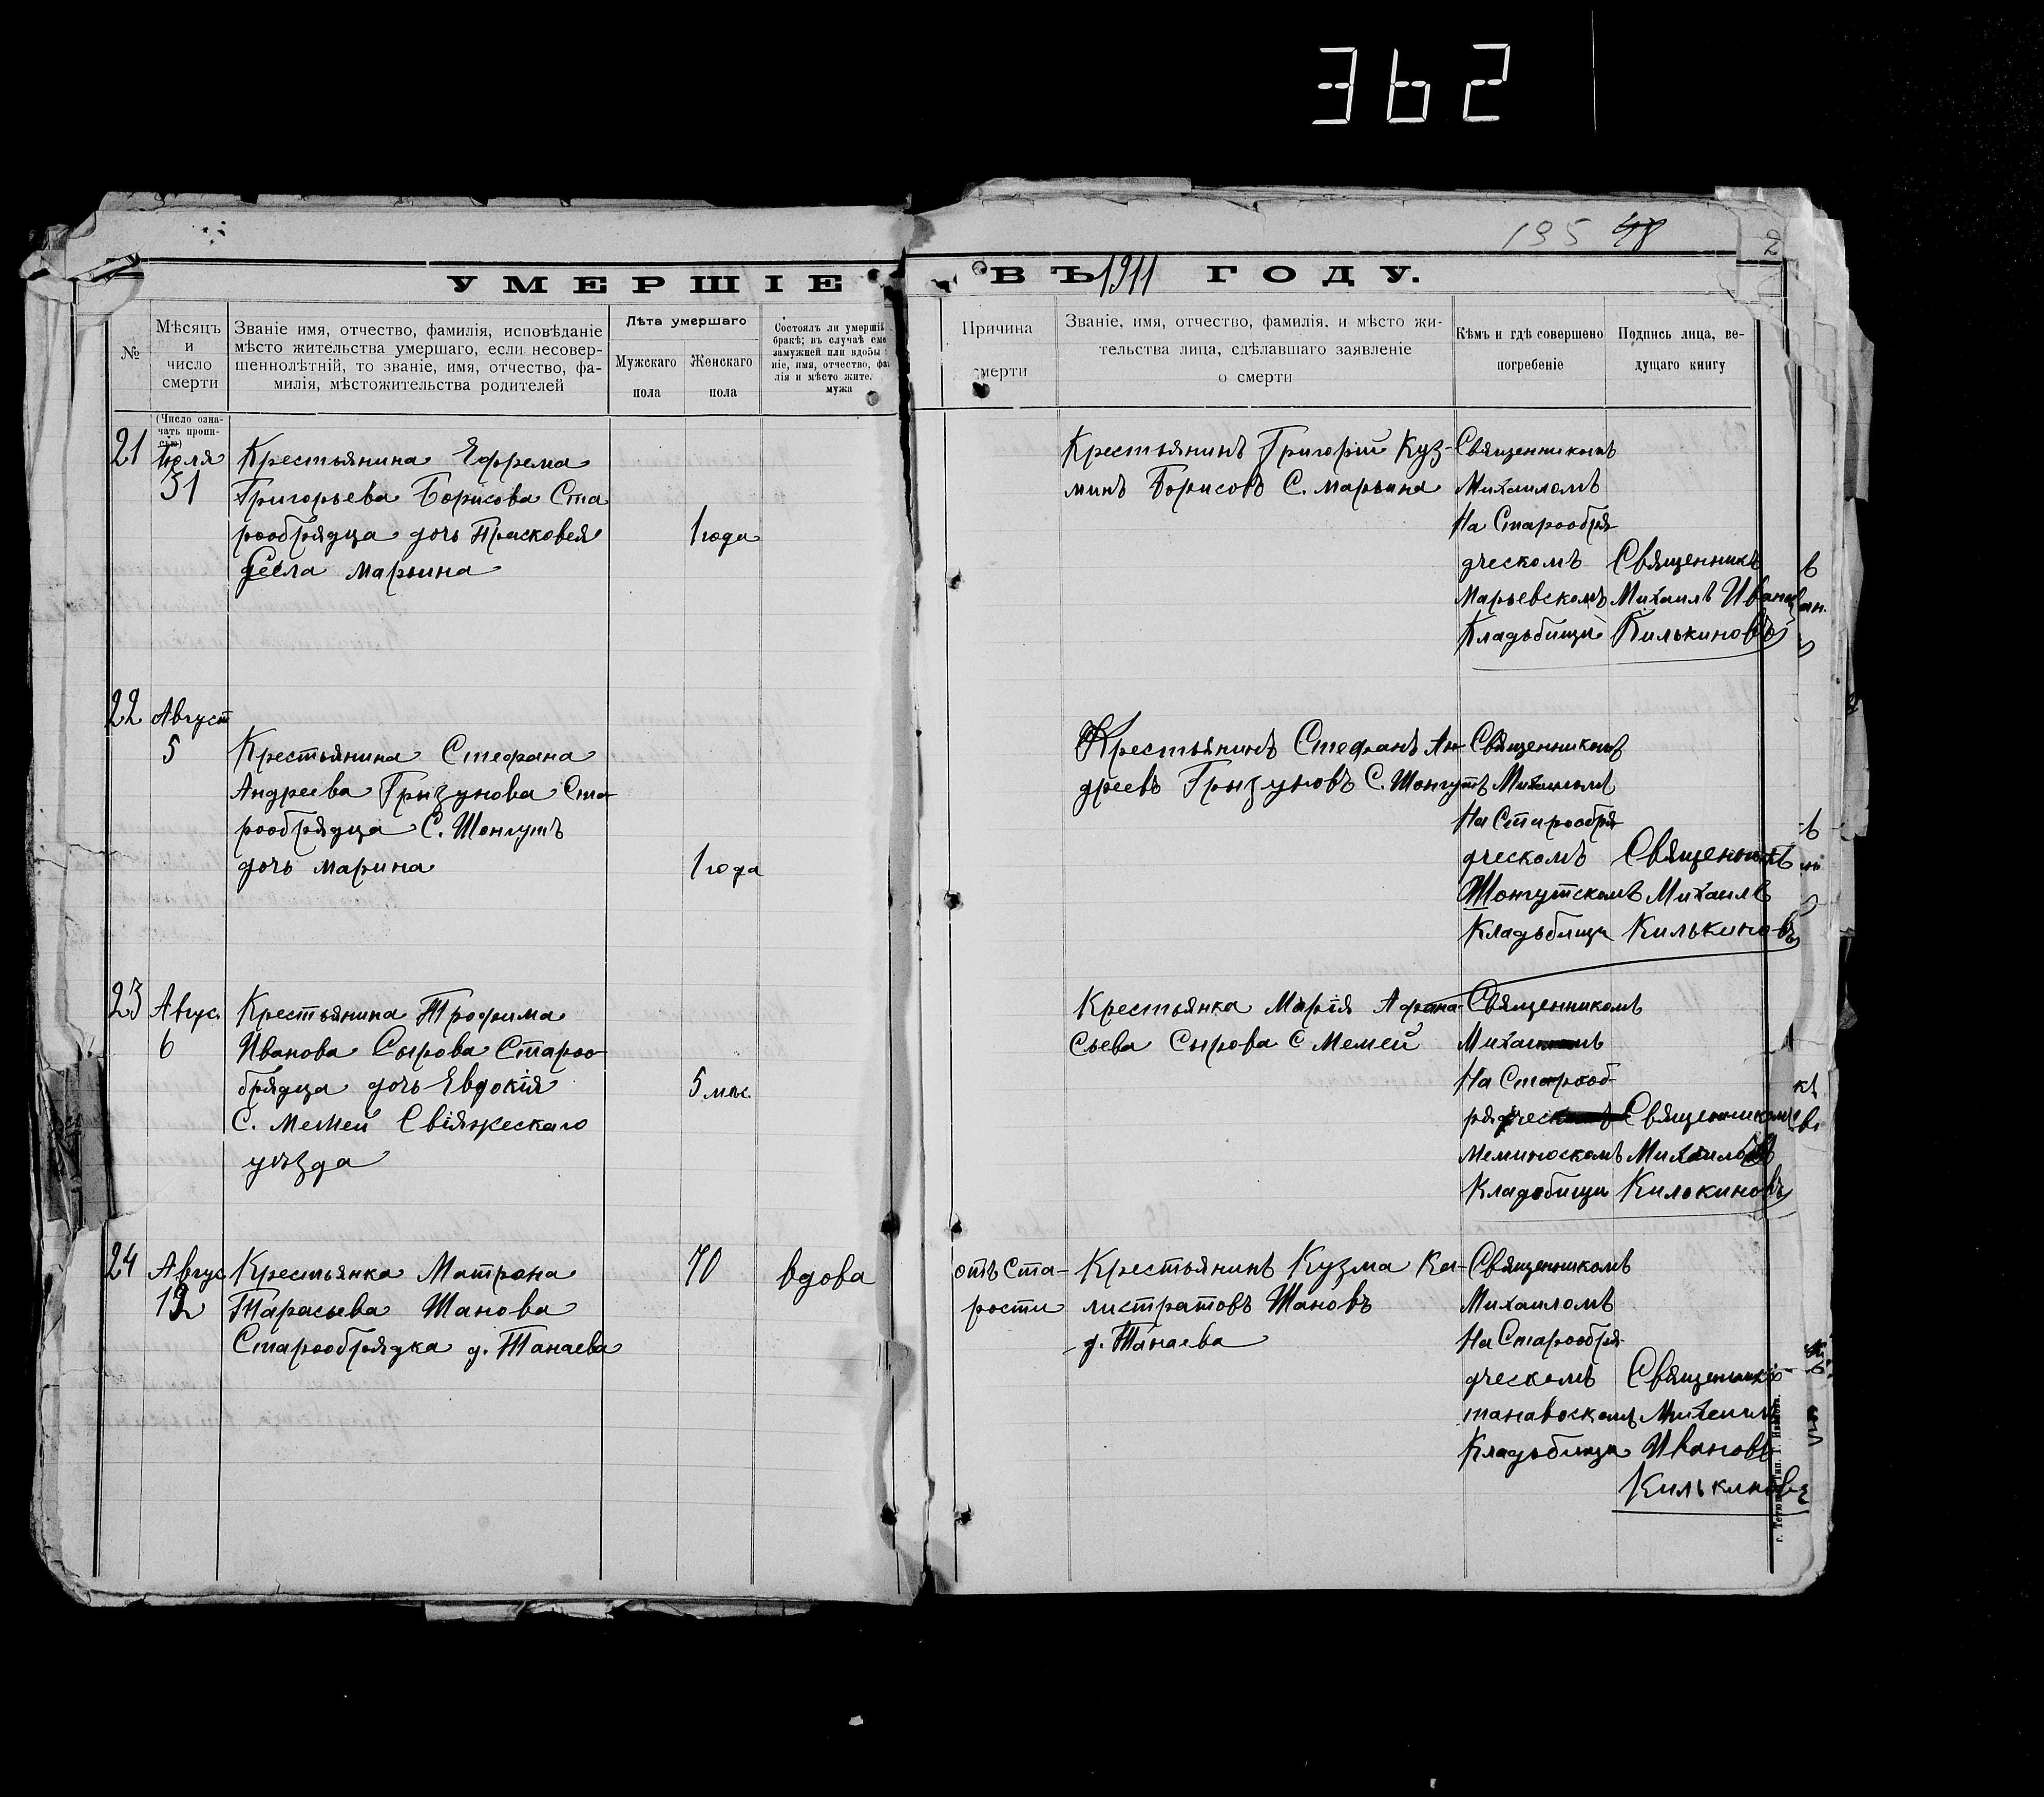 362
195 48
2
УМЕРШІЕ ВЪ 1911 ГОДУ.
№
Мѣсяцъ
и
число
смерти
Званіе имя, отчество, фамилія, исповѣданіе
мѣсто жительства умершаго, если несовер-
шеннолѣтній, то званіе, имя, отчество, фа-
милія, мѣстожительства родителей
Лѣта умершаго
Мужскаго
пола
Женскаго
пола
Состоялъ ли умершій
бракѣ; въ случаѣ сме
замужней или вдовы
ніе, имя, отчество, фа
лія и мѣсто жите.
мужа
Причина
смерти
Званіе, имя, отчество, фамилія, и мѣсто жи-
тельства лица, сдѣлавшаго заявленіе
о смерти
Кѣмъ и гдѣ совершено
погребеніе
Подпись лица, ве-
дущаго книгу
(Число озна-
чать пропи-
сью)
21
Іюля
31
Крестьянина Ефрема
Григорьева Борисова Ста
рообрядца дочь Прасковея
Села Марьина
1 года
Крестьянинъ Григорій Куз-
минъ Борисовъ С. Марьина
Священникомъ
Михаиломъ
На Старообря-
дческомъ
Марьевскомъ
Кладьбищи
Священникъ
Михаилъ Иванов
Килькиновъ
22
Август
5
Крестьянина Стефана
Андреева Грызунова Ста-
рообрядца С. Шонгутъ
дочь Марина
1 года
Крестьянинъ Стефанъ Ан-
дреевъ Грызуновъ С. Шонгутъ
Священникомъ
Михаиломъ
На Старообря-
дческомъ
Шонгутскомъ
Кладьбищи
Священникъ
Михаилъ
Килькиновъ
23
Авгус.
6
Крестьянина Трофима
Иванова Сырова Староо-
брядца дочь Евдокія
С. Мемей Свіяжескаго
уѣзда
5 мѣс.
Крестьянка Марія Афана-
сьева Сырова С Мемей
Священникомъ
На Старооб-
Меминоскомъ
Кладбищи
Священником
Килькиновъ
24
Авгус
12
Крестьянка Матрона
Тарасьева Шанова
Старообрядка д. Танаева
70
вдова
отъ Ста-
рости
Крестьянинъ Кузма Ка-
листратовъ Шановъ
д. Танаева
Священникомъ
Михаиломъ
На Старообря-
дческомъ
танавоскомъ
Кладьбищи
Священникъ
Михаилъ
Ивановъ
Килькиновъ